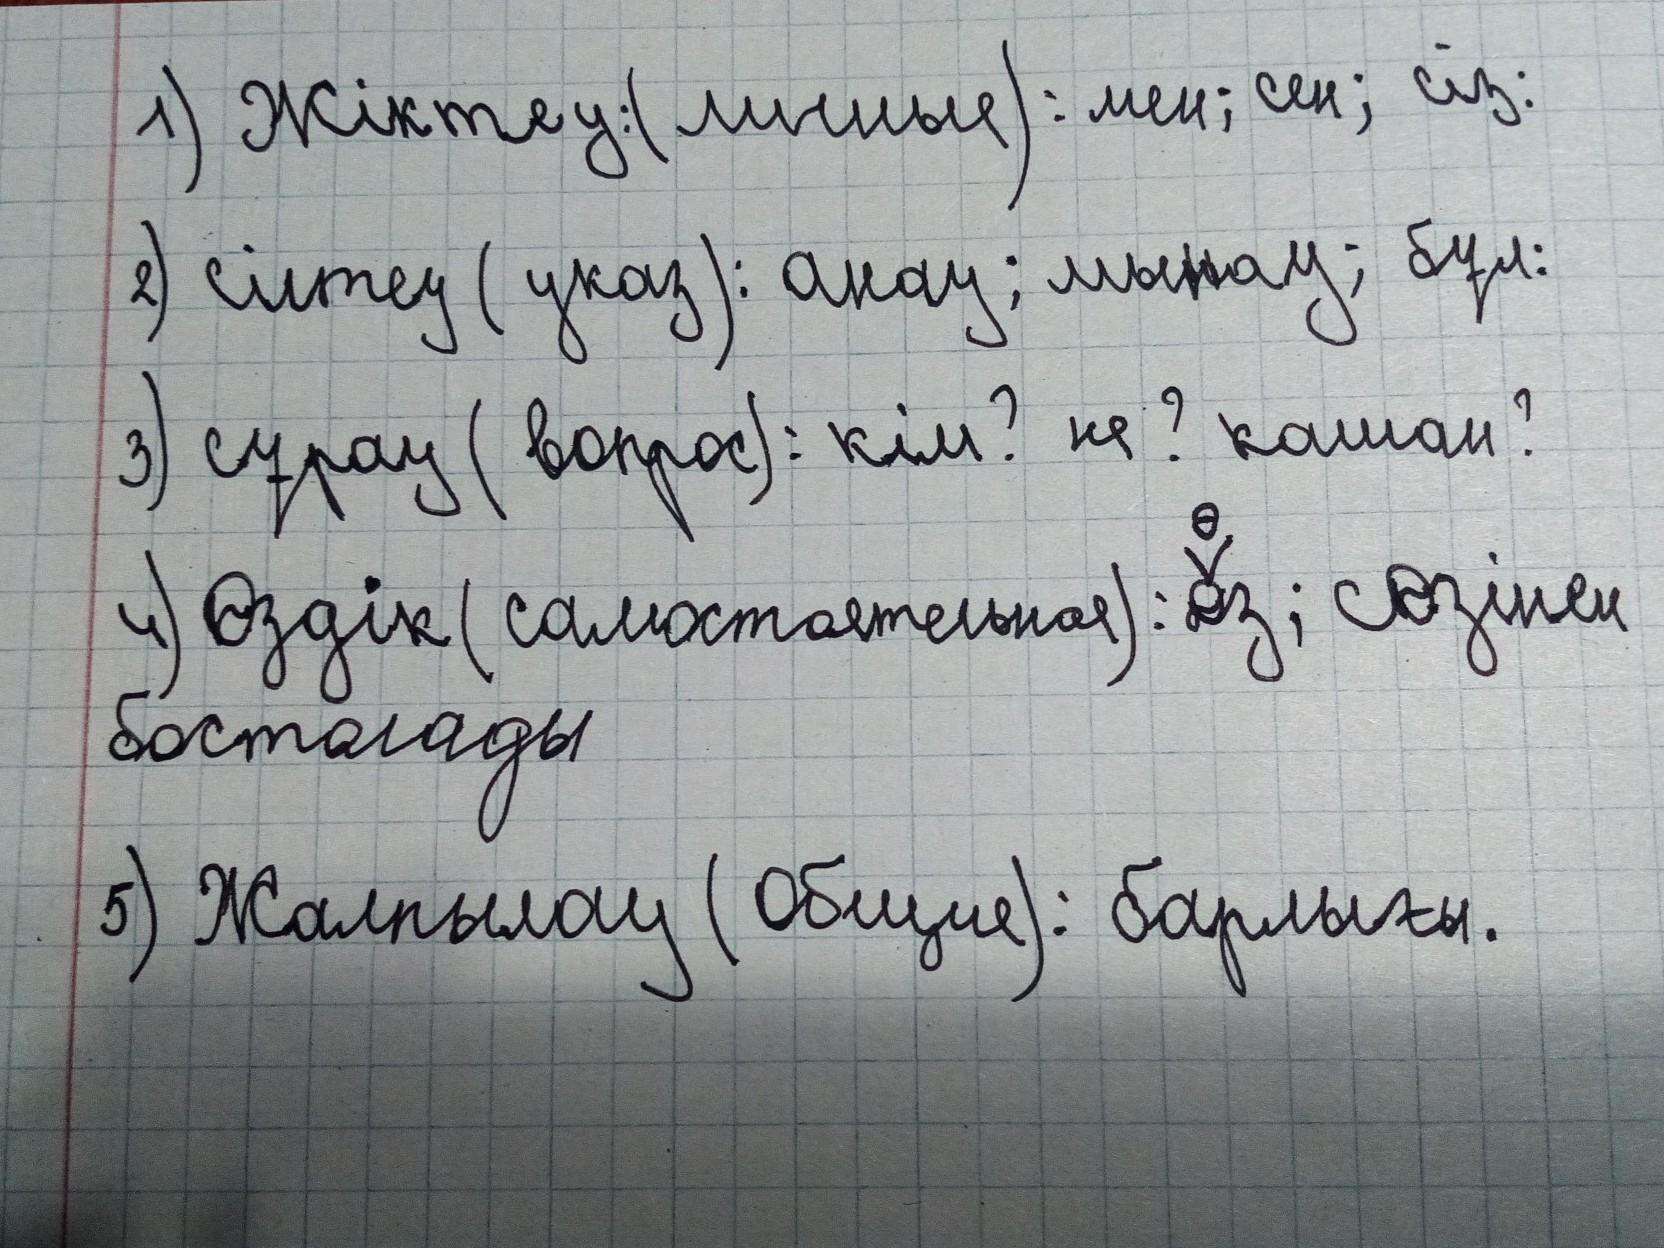 1) Жіктеу:(личные): мен; сен; сіз:
2) сілтеу (указ): анау; мынау; бұл:
3) сұрау (вопрос): кім? не? кашан?
ө
4) Өздік (самостоятельная): өз; сөзінен
басталады
5) Жалпылау (Общие): барлығы.